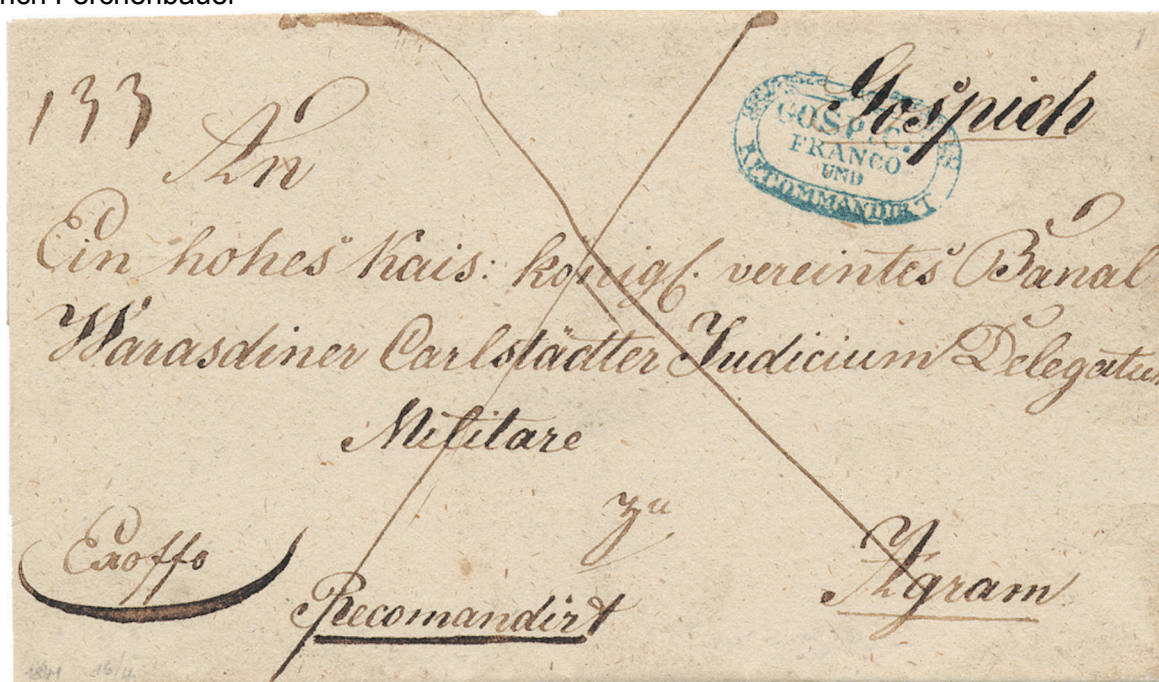 133
Gospich
GOSPIC.
FRANCO
UND
RECOMMANDIRT
An
Ein hohes Kais: königl. vereintes Banal
Warasdiner Carlstädter Judicium Delegatum
Militare
zu
Exoffo
Agram
Recomandirt